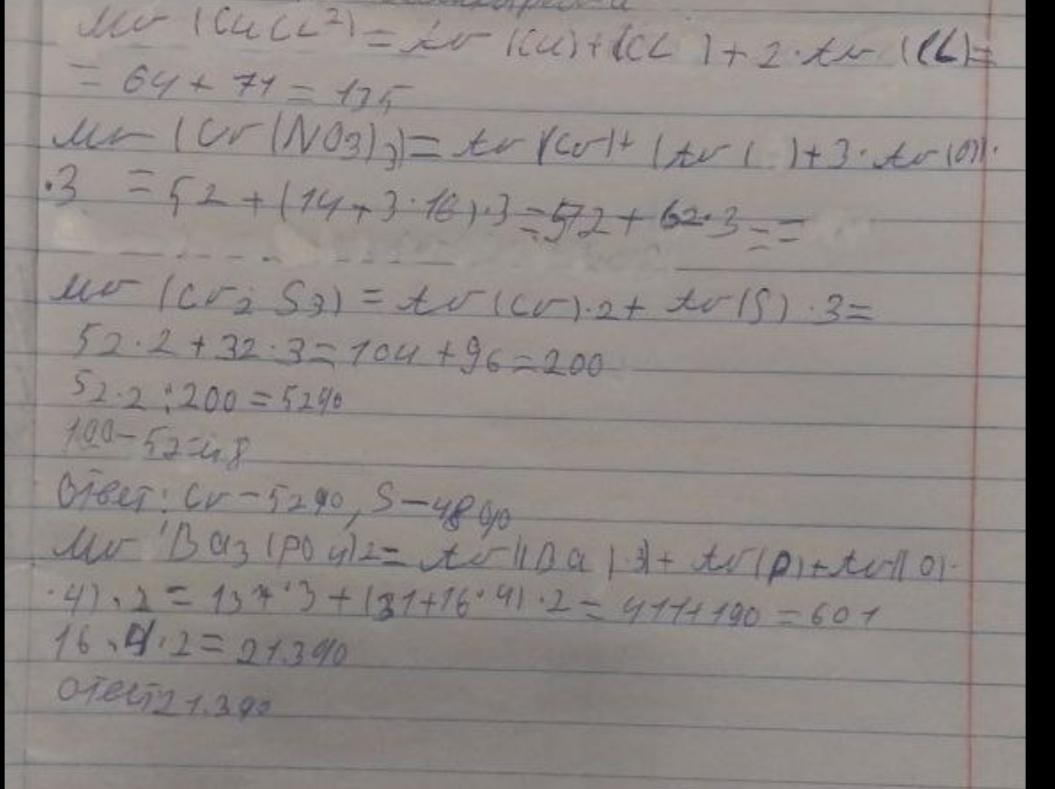 Mr (CuCl2) = Ar (Cu) + (Cl ) + 2·Ar (Cl) =
= 64 + 71 = 135
Mr (Cr(NO3)3) = Ar (Cr) + (Ar ( ) + 3·Ar(O))·
·3 = 52 + (14 + 3·16)·3 = 52 + 62·3 = =
Mr (Cr2 S3) = Ar (Cr)·2 + Ar (S)·3 =
52·2 + 32·3 = 104 + 96 = 200
52·2 : 200 = 52%
100 - 52 = 48
Ответ: Cr - 52%, S - 48%
Mr Ba3 (PO4)2 = Ar ((Ba)·3) + Ar (P) + Ar ((O)·
·4)·2 = 137·3 + (31 + 16·4)·2 = 411 + 190 = 601
16·4·2 = 21.3%
Ответ 21.3%